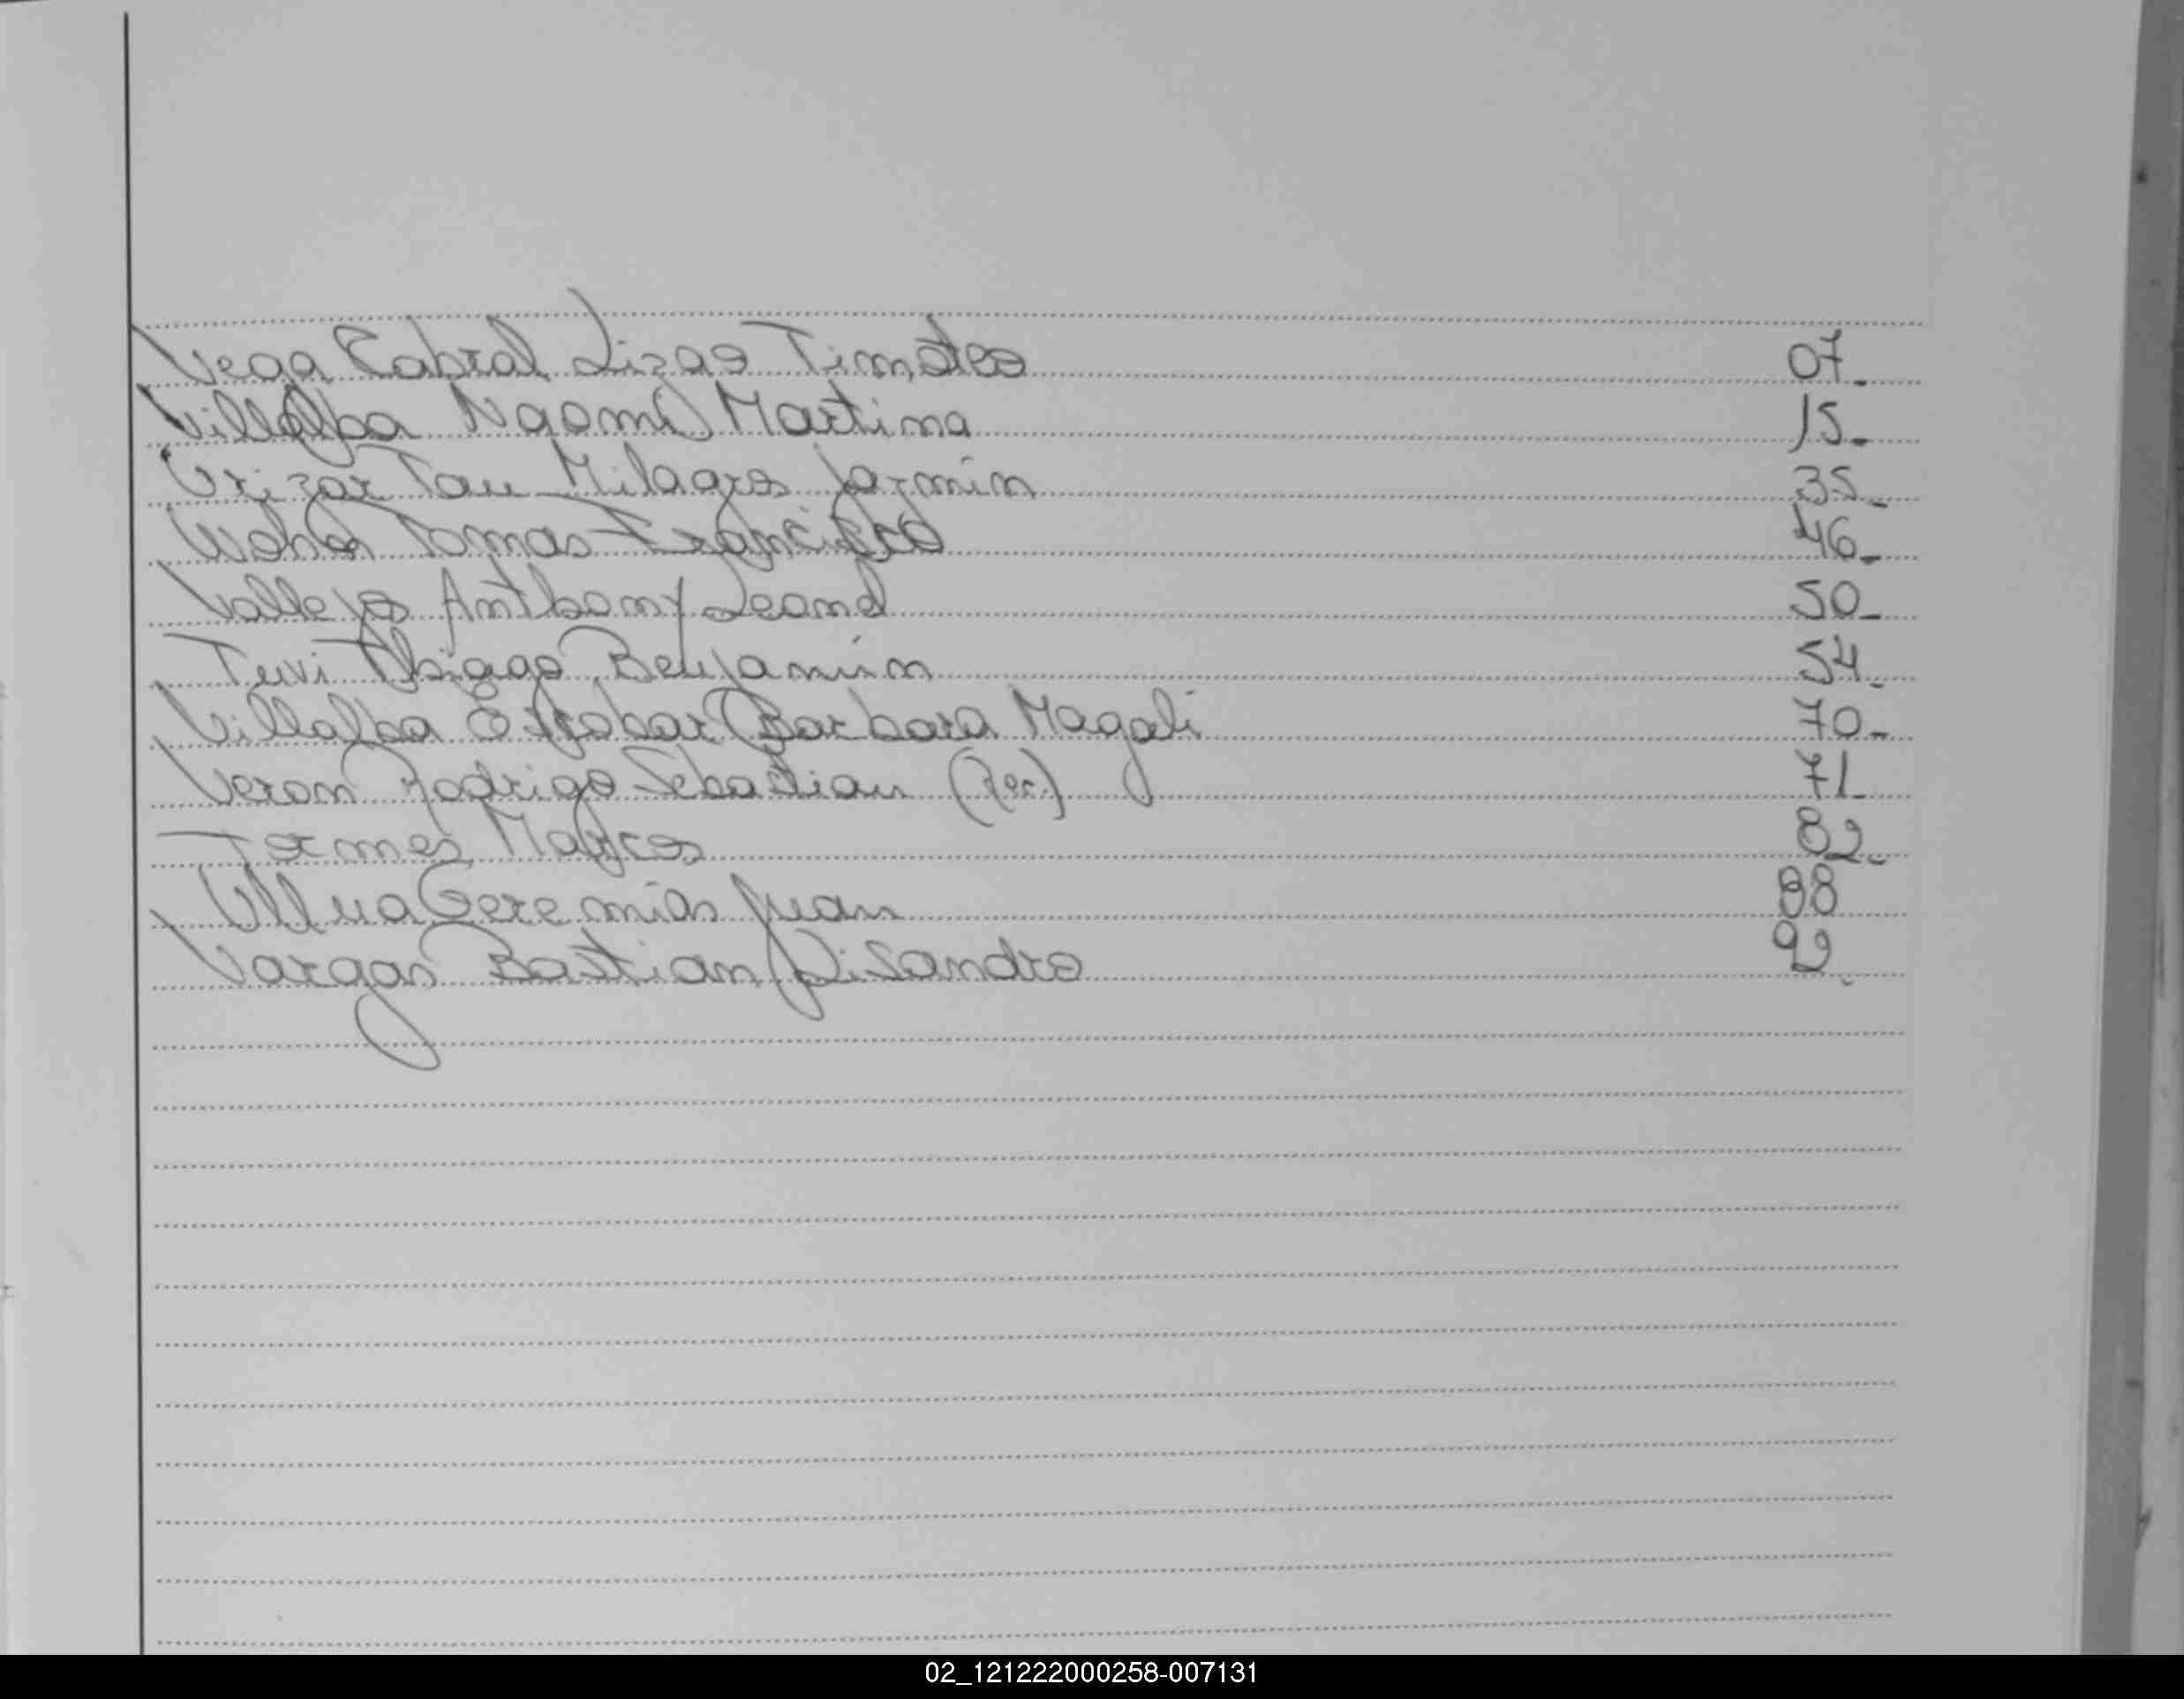 Vega Cabral Lizao Timoteo 07_
Villalba Naomi Martina 15_
Urizar Tau Milagros Jazmin 35_
Tomas Francisco 46_
Vallejos Anthony Leand 50_
Tuvi Thiago Benjamin 54_
Villalba Escobar Barbara Magali 70_
Veron Rodrigo Sebastian (Rec.) 71_
Tormes Marcos 82_
Ullua Geremias Juan 88
Vargas Bastian Lisandro 92_
02_121222000258-007131